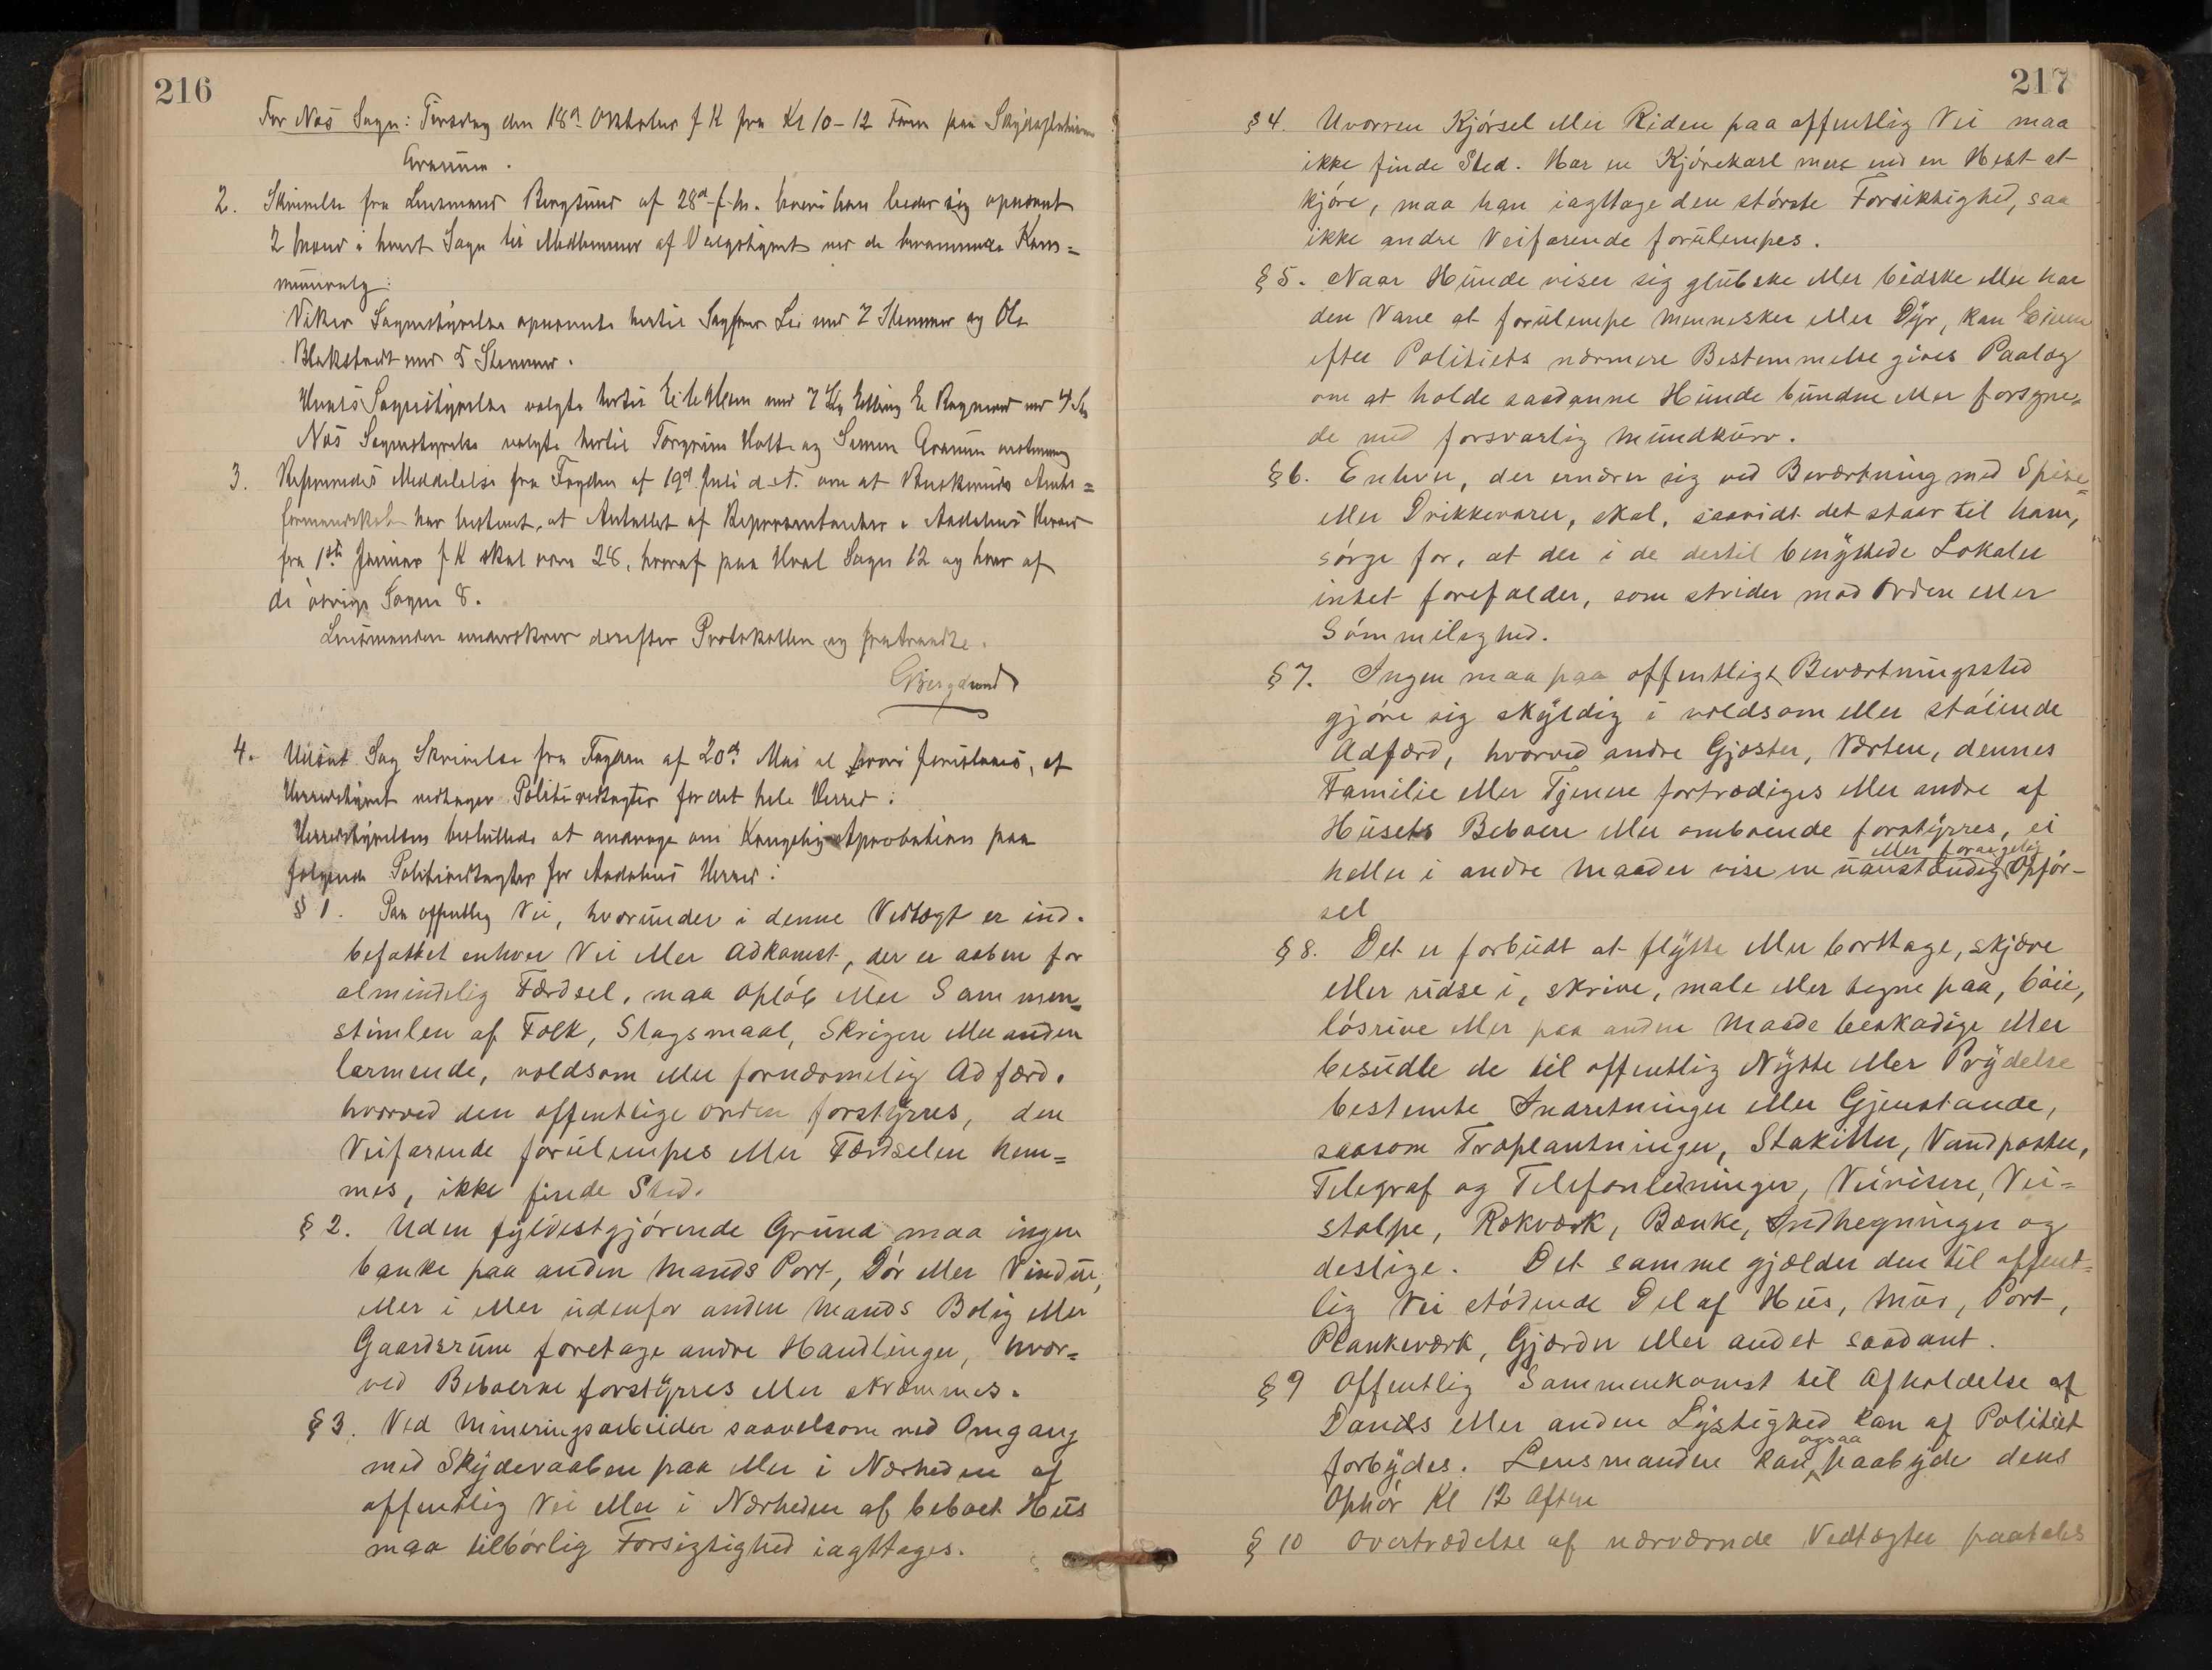 216
For Næs Sogn: Tirsdag den 18de Oktober f K fra Kl 10-12 Form paa Skydsstationen
Granum.
2. Skrivelse fra Lensmand Bergsund af 28de f.M. hvori han beder sig opnævnt
2 Mænd i hvert Sogn til Medlemmer af Valgstyret ved de kommende Kom=
munevalg:
Viker Sognestyrelse opnævnte hertil Sagfører Lie med 7 Stemmer og Ole
Blakstvedt med 5 Stemmer.
Hvals Sognestyrelse valgte hertil Eilef Hem med 7 St og Elling E. Rogned med 4 St
Næs Sognestyrelse valgte hertil Torgrim Holte og Simen Granum enstemmig
3. Refereredes Meddelelse fra Fogden af 19de Juli d.A. om at Buskeruds Amts=
formandskab har bestemt, at Antallet af Repræsentanter i Aadalens Herred
fra 1ste Januar f K skal være 28, hvoraf paa Hval Sogn 12 og hver af
de øvrige Sogne 8.
Lensmanden underskrev derefter Protokollen og fratraadte.
GBergsund
4. Udsat Sag Skrivelse fra Fogden af 20de Mai al hvori foreslaaes, at
Herredstyret vedtager Politivedtægter for det hele Herred:
Herredstyrelsen besluttede at andrage om Kongelig Aprobation paa
følgende Politivedtægter for Aadalens Herred:
§ 1. Paa offentlig Vei, hvorunder i denne Vedtægt er ind-
befattet enhver Vei eller Adkomst, der er aaben for
almindelig Færdsel, maa Opløb eller Sammen=
stimlen af Folk, Slagsmaal, Skrigen eller anden
larmende, voldsom eller fornærmelig Adfærd.
hvorved den offentlige Orden forstyrres, den
Veifarende forulempes eller Færdselen hem=
mes, ikke finde Sted.
§ 2. Uden fyldestgjørende Grund maa ingen
banke paa anden Mands Port, Dør eller Vindue,
eller i eller udenfor anden Mands Bolig eller
Gaardsrum foretage andre Handlinger, hvor=
ved Beboerne forstyrres eller skræmmes.
§ 3. Ved Mineringsarbeider saavelsom ved Omgang
med Skydevaaben paa eller i Nærheden af
offentlig Vei eller i Nærheden af beboet Hus
maa tilbørlig Forsigtighed iagttages.
217
§ 4. Uvorren Kjørsel eller Riden paa offentlig Vei maa
ikke finde Sted. Har en Kjørekarl mere end en Hest at
kjøre, maa han iagttage den største Forsiktighed, saa
ikke andre Veifarende forulempes.
§ 5. Naar Hunde viser sig glubske eller bidske eller har
den Vane at forulempe Mennesker eller Dyr, kan Eieren
efter Politiets nærmere Bestemmelse gives Paalæg
om at holde saadanne Hunde bundne eller forsyne=
de med forsvarlig Mundkurv.
§ 6. Enhver, der ernærer sig ved Beværtning med Spise=
eller Drikkevarer, skal, saavidt det staar til ham,
sørge for, at der i de dertil benyttede Lokaler
intet forefalder, som strider mod Orden eller
Sømmelighed.
§ 7. Ingen maa paa offentligt Beværtningssted
gjøre sig skyldig i voldsom eller støiende
Adfærd, hvorved andre Gjæster, Værten, dennes
Familie eller Tjenere fortrædiges eller andre af
Husets Beboere eller omboende forstyrres, ei
eller forargelig
heller i andre Maader vise en uanstændig Opfør-
sel
§ 8. Det er forbudt at flytte eller borttage, skjære
eller ridse i, skrive, male eller tegne paa, bøie,
løsrive eller paa anden Maade beskadige eller
besudle de til offentlig Nytte eller Prydelse
bestemte Indretninger eller Gjenstande,
saasom Træplantninger, Stakitter, Vandposter,
Telegraf og Telefonledninger, Veivisere, Vei=
stolpe, Rækværk, Bænke, Indhegninger og
deslige. Det samme gjælder den til offent=
lig Vei stødende Del af Hus, Mur, Port,
Plankeværk, Gjærder eller andet saadant.
§ 9 Offentlig Sammenkomst til Afholdelse af
Dands eller anden Lystighed kan af Politiet
ogsaa
forbydes. Lensmanden kan paabyde dens
Ophør Kl 12 Aften
§ 10 Overtrædelse af nærværnde Vedtægter paatales